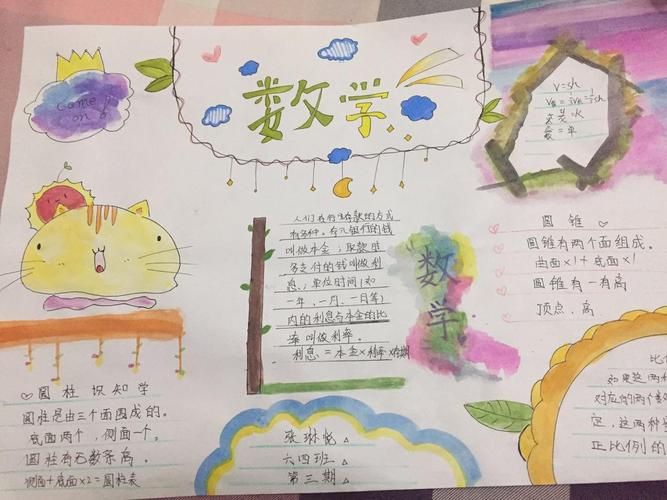 数学
come
on!
V=sh
人们在银行存款的方式
有多种。存入银行的钱
叫做本金；取款时
多支付的钱叫做利
息；单位时间（如
一年、一月、一日等）
内的利息与本金的比
率叫做利率。
利息＝本金×利率×存期
数
学
圆锥
圆锥有两个面组成。
曲面×1＋底面×1
圆锥有一有高
顶点、高
圆柱识知学
圆柱是由三个面围成的。
底面两个，侧面一个。
圆柱有无数条高。
侧面＋底面×2＝圆柱表
张琳悦
六四班
第三期
比
如果这两种
对应的两个数
定，这两种
正比例的